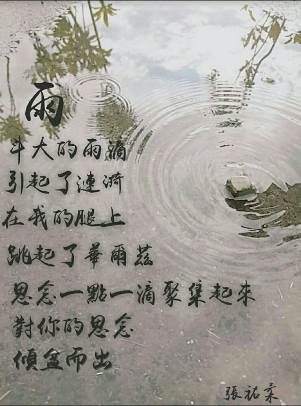 雨
斗大的雨滴
引起了漣漪
在我的腿上
跳起了華爾茲
思念一點一滴聚集起來
對你的思念
傾盆而出
張祐棠